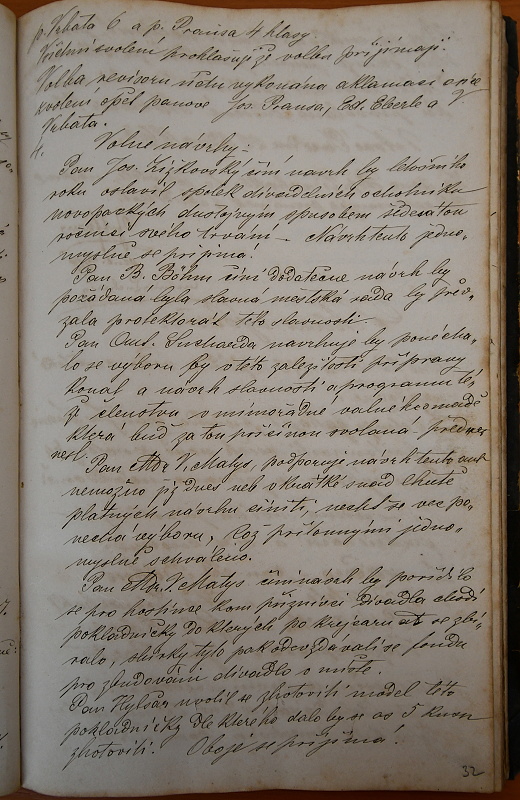 p. Vrbata 6 a p. Prausa 4 hlasy.
Všichni zvolení prohlašují že volbu přijímají.
Volba revisorů účtů vykonána aklamací a jsou
zvoleni opět pánové Jos. Prausa, Ed. Eberle a
Vrbata.
4. Volné návrhy:
Pan Jos. Žižkovský činí návrh by letošního
roku oslavil spolek divadelních ochotníků
novopackých důstojným spůsobem šedesátou
ročnici svého trvání. Návrh tento jedno-
myslně se přijímá.
Pan B. Böhm činí dodatečně návrh by
požádána byla slavná městská rada by přev-
zala protektorát této slavnosti.
Pan Ant. Sucharda navrhuje by ponecha-
lo se výboru, by v této záležitosti přípravy
konal a návrh slavnosti a programu té-
že členstvu v mimořádné valné hromadě
která buď za tou příčinou svolána - předne-
nesl.
Pan MDr. V. Matys, podporuje návrh tento
nemožno již dnes neb v krátké snad lhůtě
platných návrhů činiti, nechť se věc po-
nechá výboru, což přítomnými jedno-
myslně schváleno.
Pan MDr. V. Matys činí návrh by pořídilo
se pro hostince kam příznivci divadla chodí
pokladničky do kterých po krejcaru se sbí-
ralo, sbírky tyto pak odevzdávali se fondu
pro zbudování divadla v místě.
Pan Hylšar uvolil se zhotoviti model této
pokladničky dle kterého dalo by se as 5 kusů
zhotoviti. Obojí se přijímá!
32